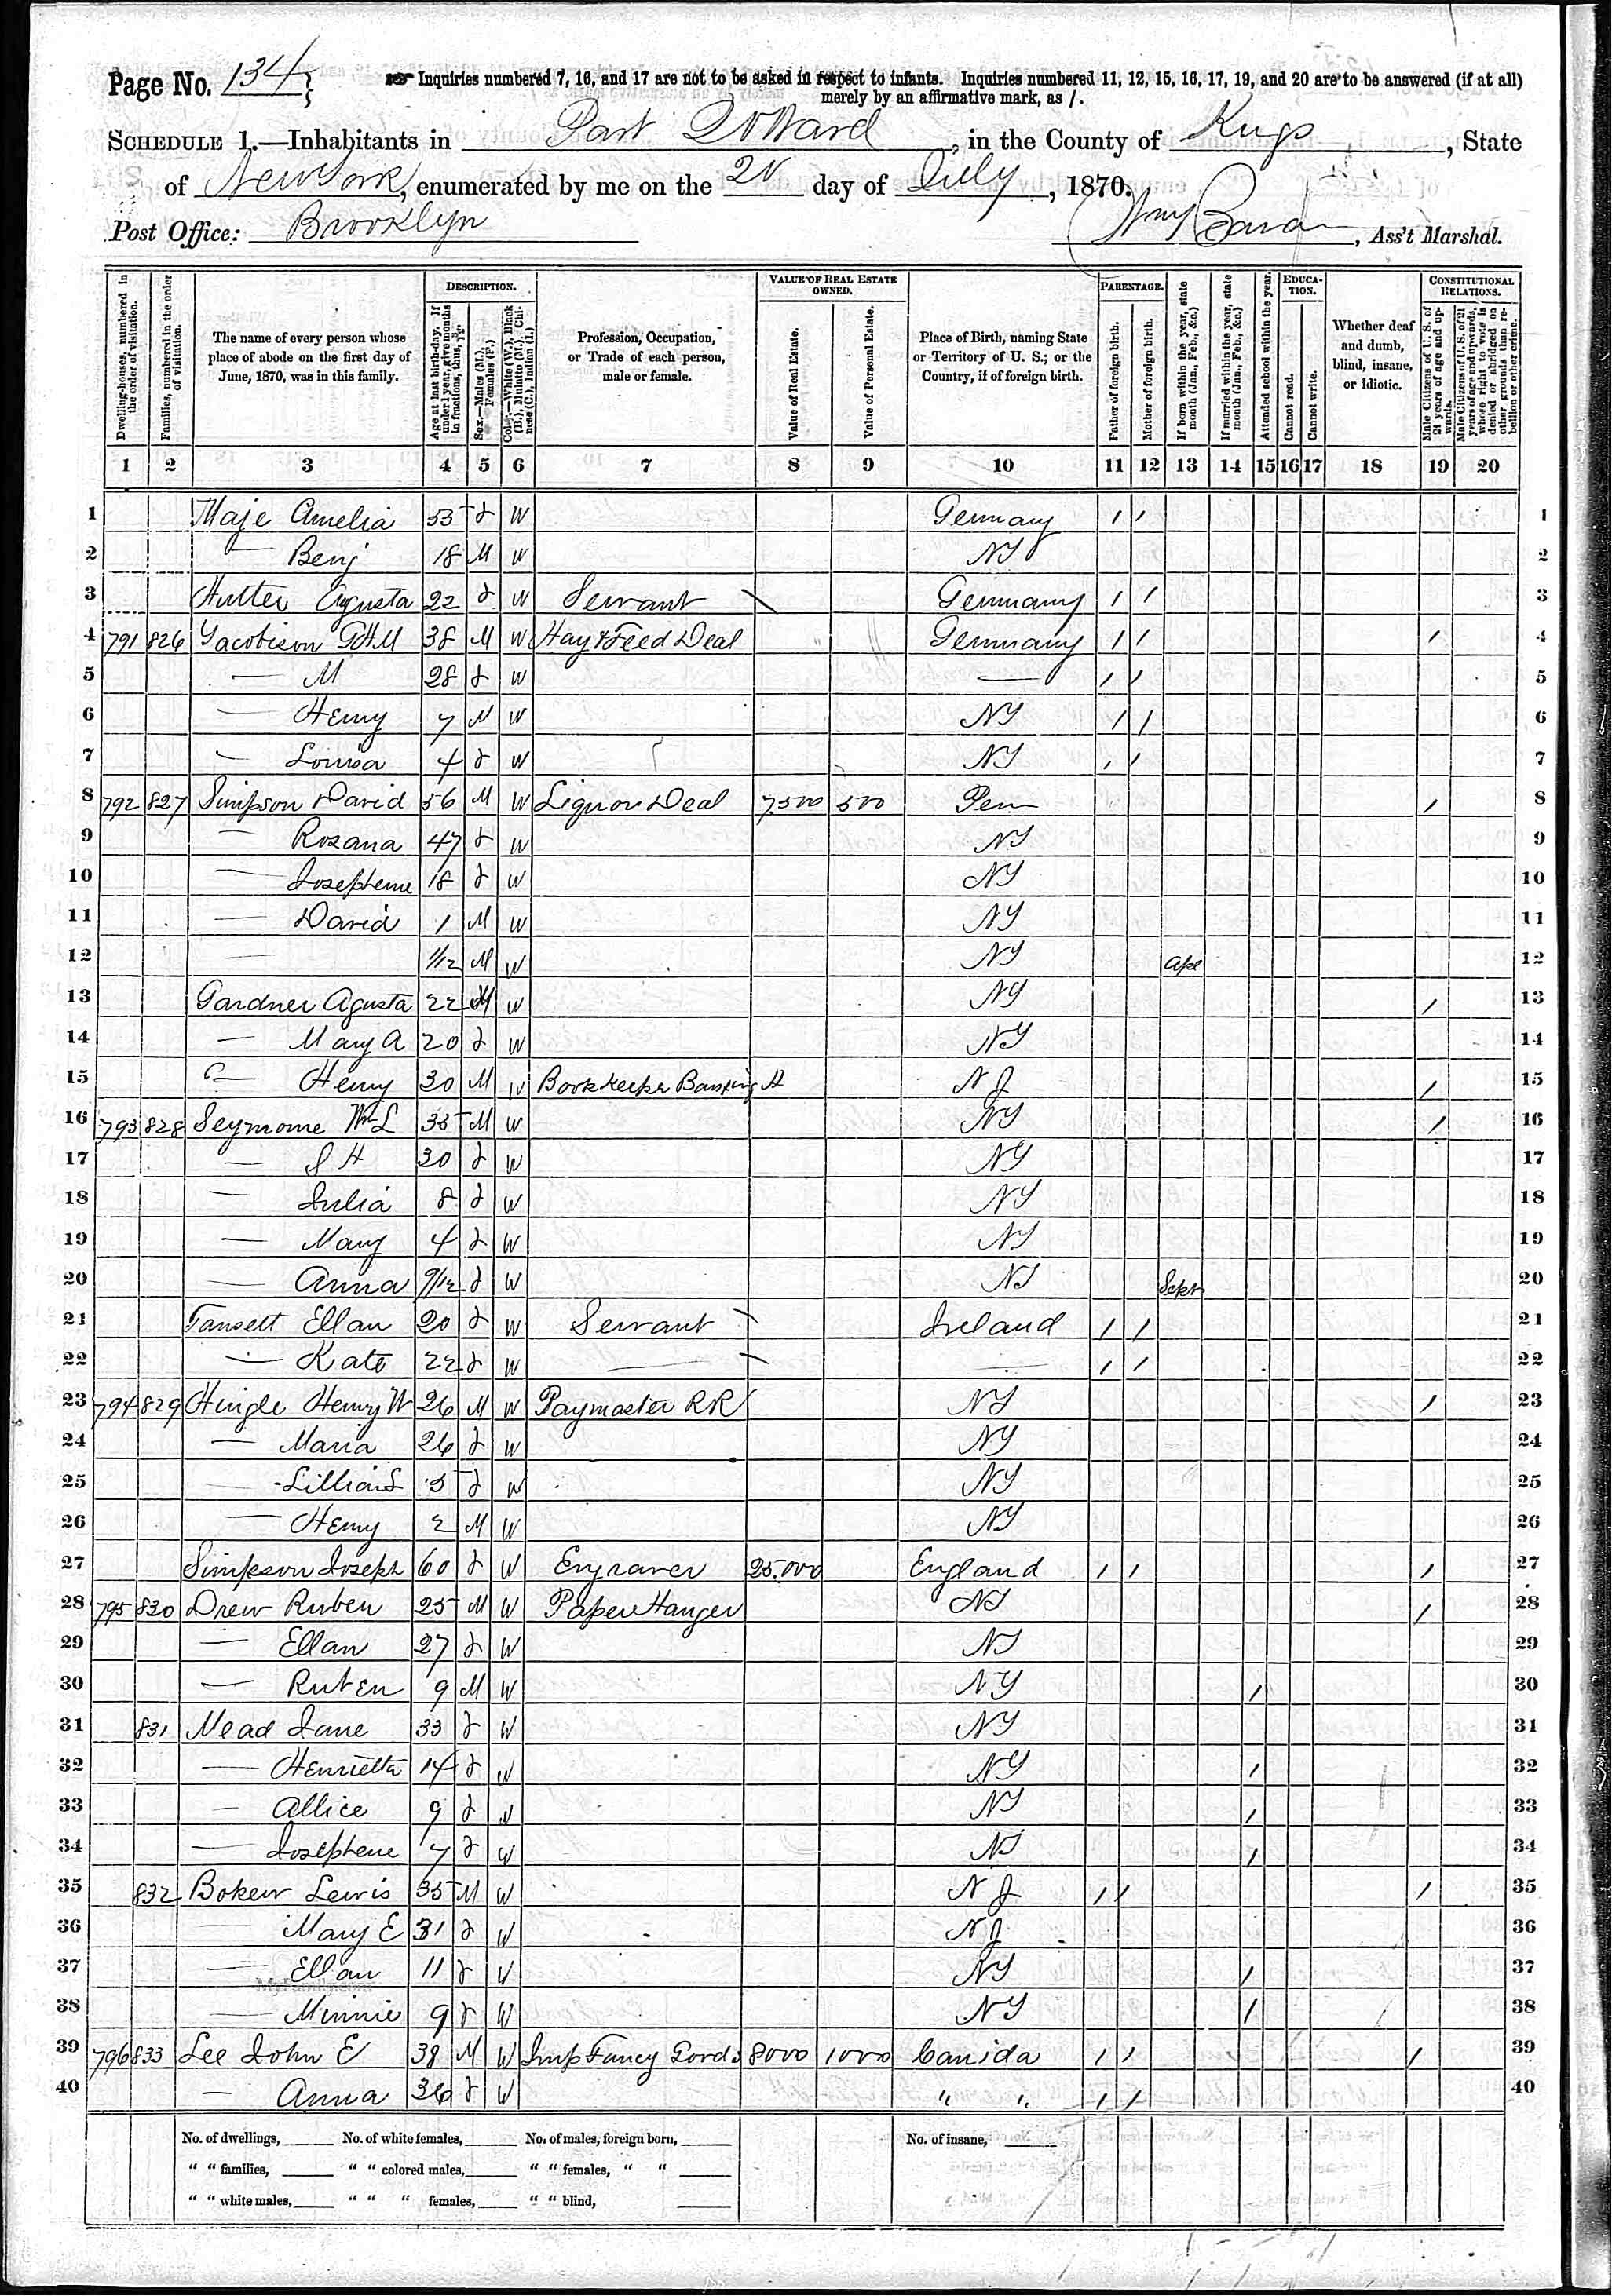 Page No. 134
Inquiries numbered 7, 16, and 17 are not to be asked in respect to infants. Inquiries numbered 11, 12, 15, 16, 17, 19, and 20 are to be answered (if at all)
merely by an affirmative mark, as /.
SCHEDULE 1.—Inhabitants in Part 20 Ward, in the County of Kings, State
of New York, enumerated by me on the 20 day of July, 1870.
Post Office: Brooklyn Ass't Marshal.
DESCRIPTION. VALUE OF REAL ESTATE OWNED. PARENTAGE. EDUCATION. CONSTITUTIONAL RELATIONS.
Dwelling-houses, numbered in the order of visitation.
Families, numbered in the order of visitation.
The name of every person whose place of abode on the first day of June, 1870, was in this family.
Age at last birth-day. If under 1 year, give months in fractions, thus, 3/12.
Sex.—Males (M.), Females (F.)
Color.—White (W.), Black (B.), Mulatto (M.), Chinese (C.), Indian (I.)
Profession, Occupation, or Trade of each person, male or female.
Value of Real Estate.
Value of Personal Estate.
Place of Birth, naming State or Territory of U. S.; or the Country, if of foreign birth.
Father of foreign birth.
Mother of foreign birth.
If born within the year, state month (Jan., Feb., &c.)
If married within the year, state month (Jan., Feb., &c.)
Attended school within the year.
Cannot read.
Cannot write.
Whether deaf and dumb, blind, insane, or idiotic.
Male Citizens of U. S. of 21 years of age and upwards.
Male Citizens of U. S. of 21 years of age and upwards, whose right to vote is denied or abridged on other grounds than rebellion or other crime.
1 2 3 4 5 6 7 8 9 10 11 12 13 14 15 16 17 18 19 20
1 Maje Amelia 53 F W Germany / / 1
2 — Benj 18 M W NY 2
3 Hutter Agusta 22 F W Servant Germany / / 3
4 791 826 Jacobison GHM 38 M W Hay & Feed Deal Germany / / / 4
5 — M 28 F W — / / 5
6 — Henry 7 M W NY / / 6
7 — Louisa 4 F W NY / / 7
8 792 827 Simpson David 56 M W Liquor Deal 7500 500 Penn / 8
9 — Rozana 47 F W NY 9
10 — Josephene 18 F W NY 10
11 — David 1 M W NY 11
12 — 1/12 M W NY Apl 12
13 Gardner Agusta 22 M W NY / 13
14 — Mary A 20 F W NY 14
15 — Henry 30 M W Bookkeeper Banking H NJ / 15
16 793 828 Seymome Wm L 35 M W NY / 16
17 — S H 30 F W NY 17
18 — Julia 8 F W NY 18
19 — Mary 4 F W NY 19
20 — Anna 9/12 F W NY Sept 20
21 Tansett Ellan 20 F W Servant Ireland / / 21
22 — Kate 22 F W — — / / 22
23 794 829 Hingle Henry W 26 M W Paymaster RR NY / 23
24 — Maria 26 F W NY 24
25 — Lillian L 5 F W NY 25
26 — Henry 2 M W NY 26
27 Simpson Joseph 60 F W Engraver 25.000 England / / / 27
28 795 830 Drew Ruben 25 M W Paper Hanger NY / 28
29 — Ellan 27 F W NY 29
30 — Ruben 9 M W NY / 30
31 831 Mead Jane 33 F W NY 31
32 — Henrietta 14 F W NY / 32
33 — Allice 9 F W NY / 33
34 — Josephene 7 F W NY / 34
35 832 Bokew Lewis 35 M W NJ / / / 35
36 — Mary E 31 F W NJ 36
37 — Ellan 11 F W NY / 37
38 — Minnie 9 F W NY / 38
39 796 833 Lee John E 38 M W Imp Fancy Gords 8000 1000 Canida / / / 39
40 — Anna 36 F W " " / / 40
No. of dwellings, No. of white females, No. of males, foreign born, No. of insane,
" " families, " " colored males, " " females, " "
" " white males, " " " females, " " blind,